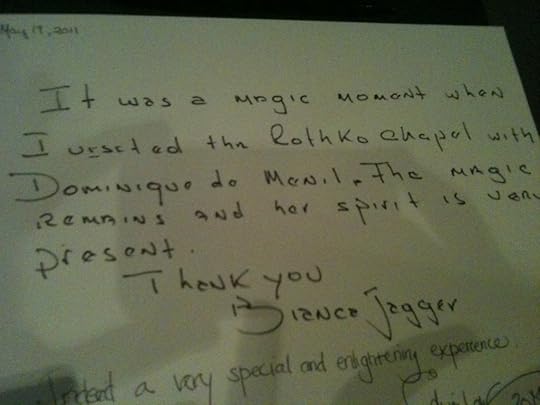 May 17, 2011
It was a magic moment when
I visited the Rothko Chapel with
Dominique de Menil. The magic
remains and her spirit is very
present.
Thank you
Bianca Jagger
Indeed a very special and enlightening experience.